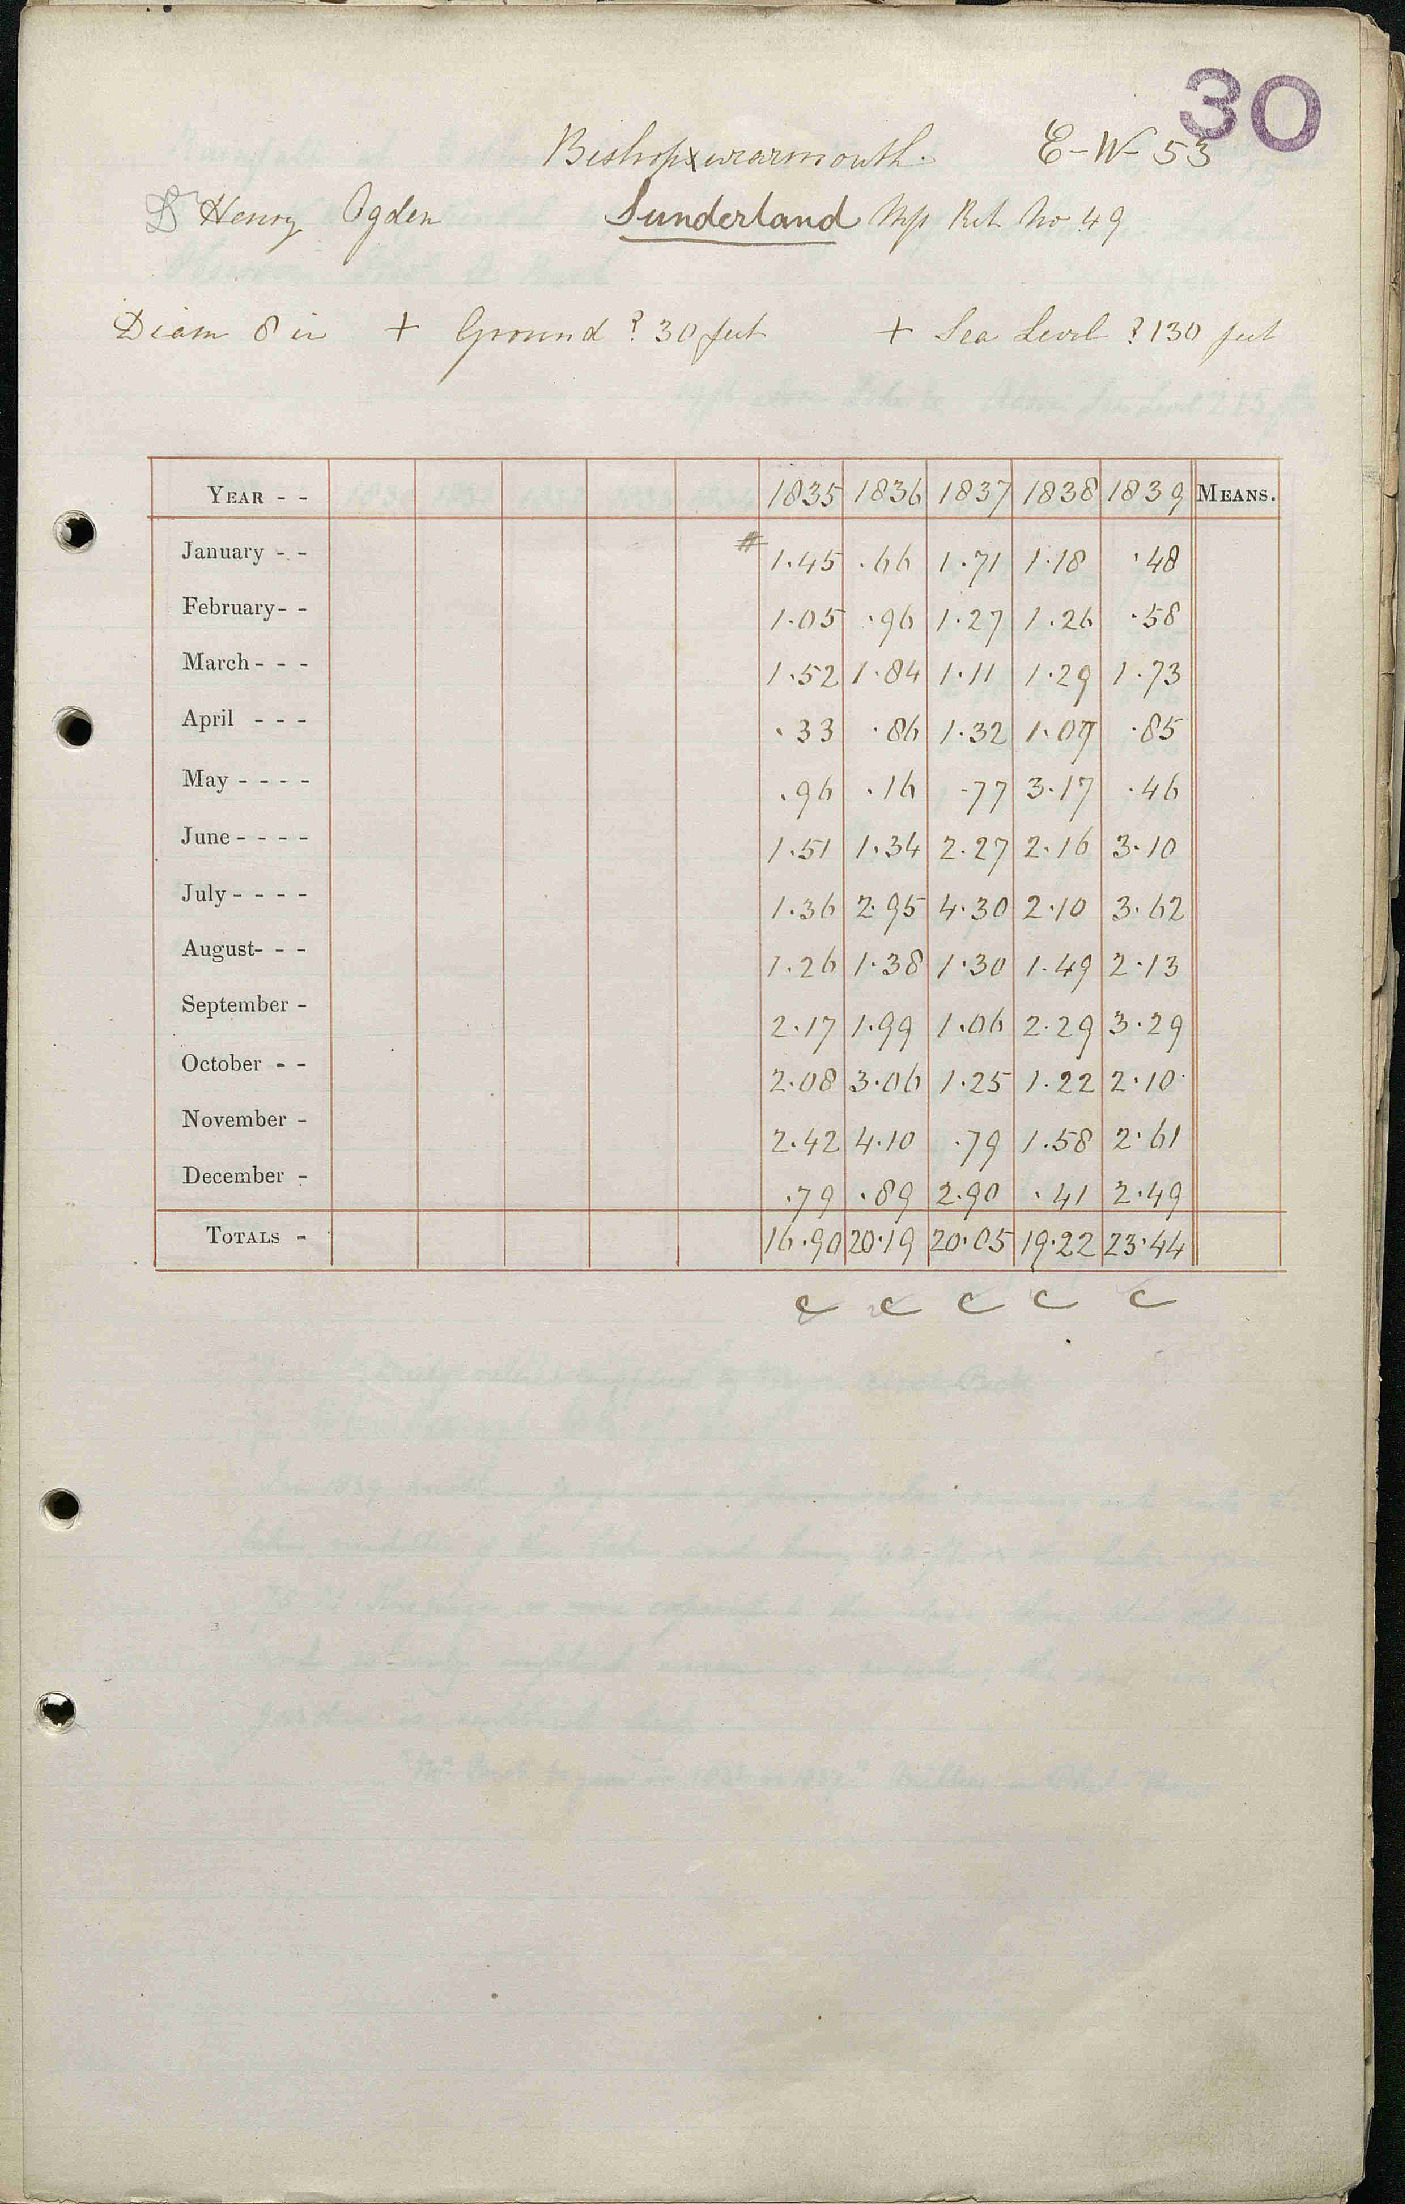 30
Bishopxwearmouth. E-W-53
Dr Henry Ogden Sunderland Mp Ret No 49
Diam 8 in + Ground ? 30 feet + Sea Level ? 130 feet
YEAR - - 1835 1836 1837 1838 1839 MEANS.
January - - # 1.45 .66 1.71 1.18 .48
February - - 1.05 .96 1.27 1.26 .58
March - - - 1.52 1.84 1.11 1.29 1.73
April - - - .33 .86 1.32 1.07 .85
May - - - - .96 .16 .77 3.17 .46
June - - - - 1.51 1.34 2.27 2.16 3.10
July - - - - 1.36 2.95 4.30 2.10 3.62
August - - - 1.26 1.38 1.30 1.49 2.13
September - 2.17 1.99 1.06 2.29 3.29
October - - 2.08 3.06 1.25 1.22 2.10
November - 2.42 4.10 .79 1.58 2.61
December - .79 .89 2.90 .41 2.49
TOTALS - 16.90 20.19 20.05 19.22 23.44
c c c c c